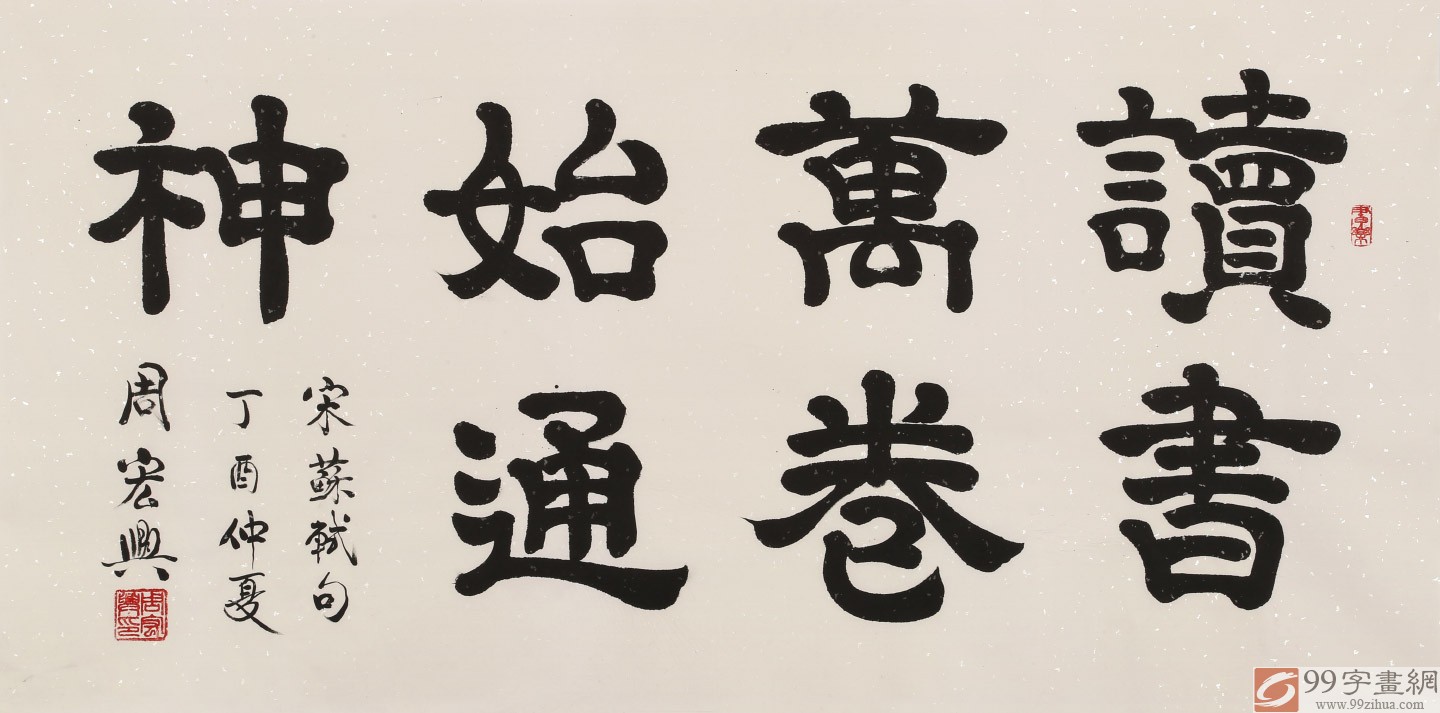 讀書
萬卷
始通
神
宋蘇軾句
丁酉仲夏
周宏興
99字畫網
www.99zihua.com